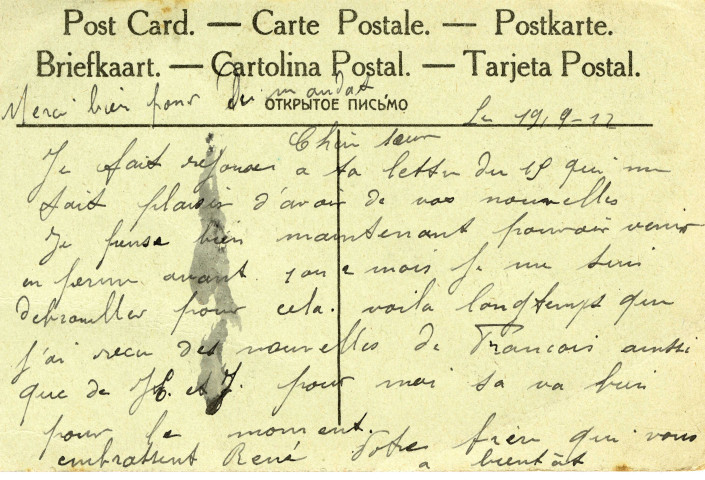 Post Card. — Carte Postale. — Postkarte.
Briefkaart. — Cartolina Postal. — Tarjeta Postal.
ОТКРЫТОЕ ПИСЬМО
Merci bien pour du mandat
Le 19-9-12
Cher sœur
Je fait reponse a ta lettre du 15 qui me
fait plaisir d'avoir de vos nouvelles
Je pense bien maintenant pouvoir venir
en perm avant 1 ou 2 mois je me suis
debrouiller pour cela. voila longtemps que
j'ai recu des nouvelles de Francois ainsi
que de JE. et J. pour moi sa va bien
pour le moment.
Votre frere qui vous
embrassent René a bientôt